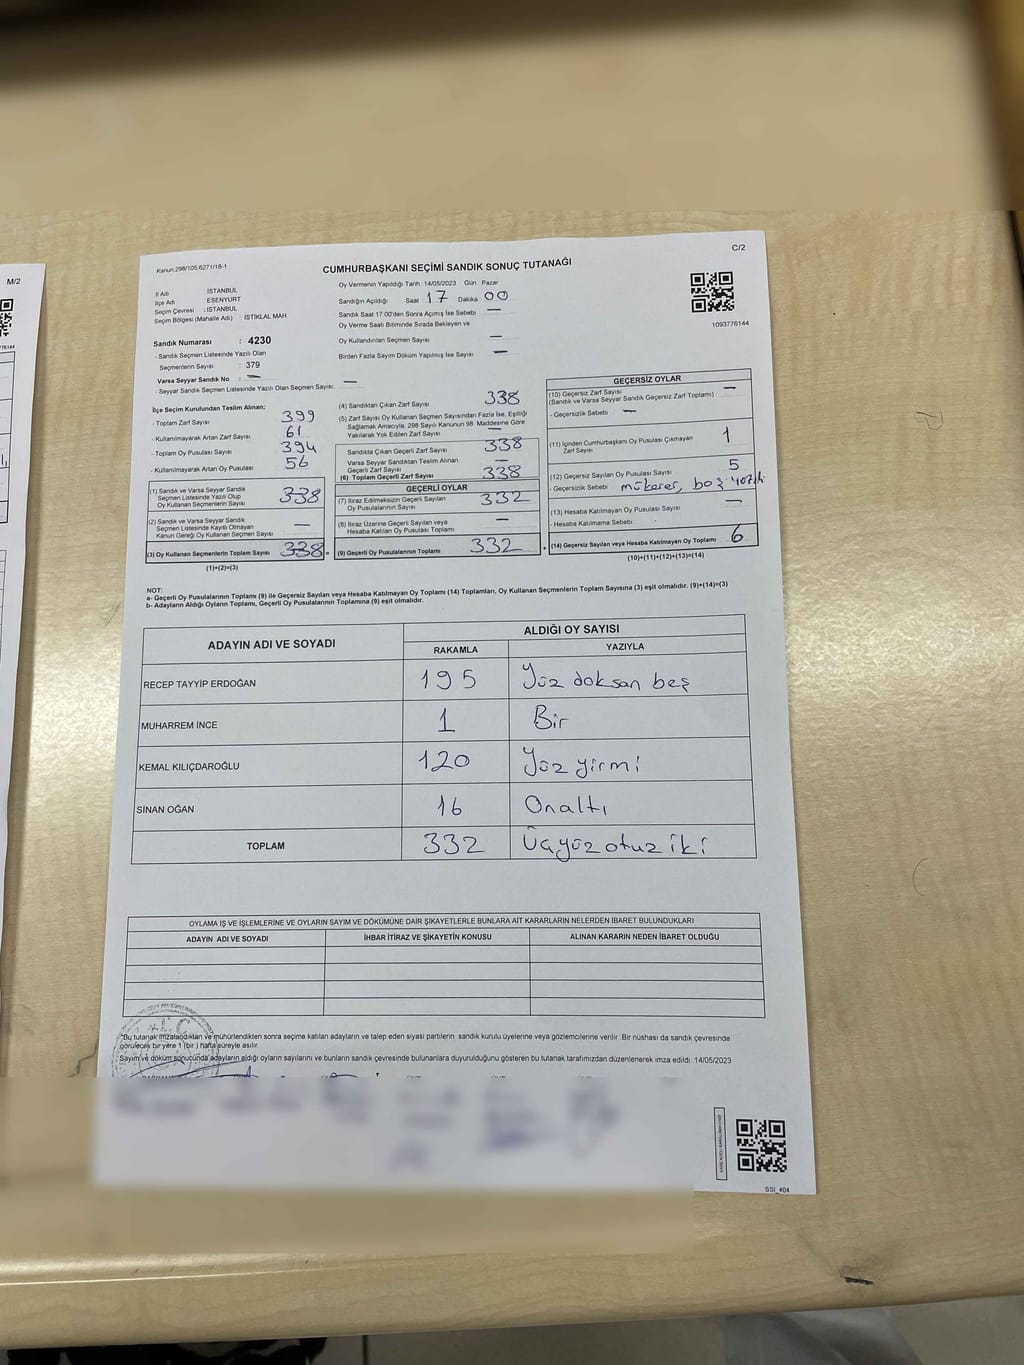 M/2
C/2
Kanun.298/105;6271/18-1
CUMHURBAŞKANI SEÇİMİ SANDIK SONUÇ TUTANAĞI
İl Adı : İSTANBUL
İlçe Adı : ESENYURT
Seçim Çevresi : İSTANBUL
Seçim Bölgesi (Mahalle Adı) : İSTİKLAL MAH
Sandık Numarası : 4230
- Sandık Seçmen Listesinde Yazılı Olan
Seçmenlerin Sayısı : 379
Varsa Seyyar Sandık No : —
- Seyyar Sandık Seçmen Listesinde Yazılı Olan Seçmen Sayısı: —
Oy Vermenin Yapıldığı Tarih 14/05/2023 Gün Pazar
Sandığın Açıldığı Saat 17 Dakika 00
Sandık Saat 17:00'den Sonra Açılmış İse Sebebi —
Oy Verme Saati Bitiminde Sırada Bekleyen ve
Oy Kullandırılan Seçmen Sayısı —
Birden Fazla Sayım Döküm Yapılmış İse Sayısı —
1093776144
İlçe Seçim Kurulundan Teslim Alınan;
- Toplam Zarf Sayısı 399
- Kullanılmayarak Artan Zarf Sayısı 61
- Toplam Oy Pusulası Sayısı 394
- Kullanılmayarak Artan Oy Pusulası 56
(1) Sandık ve Varsa Seyyar Sandık
Seçmen Listesinde Yazılı Olup
Oy Kullanan Seçmenlerin Sayısı 338
(2) Sandık ve Varsa Seyyar Sandık
Seçmen Listesinde Kayıtlı Olmayan
Kanun Gereği Oy Kullanan Seçmen Sayısı —
(3) Oy Kullanan Seçmenlerin Toplam Sayısı 338 =
(1)+(2)=(3)
(4) Sandıktan Çıkan Zarf Sayısı 338
(5) Zarf Sayısı Oy Kullanan Seçmen Sayısından Fazla İse, Eşitliği
Sağlamak Amacıyla, 298 Sayılı Kanunun 98. Maddesine Göre
Yakılarak Yok Edilen Zarf Sayısı —
Sandıkta Çıkan Geçerli Zarf Sayısı 338
Varsa Seyyar Sandıktan Teslim Alınan
Geçerli Zarf Sayısı —
(6) Toplam Geçerli Zarf Sayısı 338
GEÇERLİ OYLAR
(7) İtiraz Edilmeksizin Geçerli Sayılan
Oy Pusulalarının Sayısı 332
(8) İtiraz Üzerine Geçerli Sayılan veya
Hesaba Katılan Oy Pusulası Toplamı —
(9) Geçerli Oy Pusulalarının Toplamı 332 +
GEÇERSİZ OYLAR
(10) Geçersiz Zarf Sayısı —
(Sandık ve Varsa Seyyar Sandık Geçersiz Zarf Toplamı)
- Geçersizlik Sebebi —
(11) İçinden Cumhurbaşkanı Oy Pusulası Çıkmayan
Zarf Sayısı 1
(12) Geçersiz Sayılan Oy Pusulası Sayısı 5
- Geçersizlik Sebebi mükerer, boş
(13) Hesaba Katılmayan Oy Pusulası Sayısı —
- Hesaba Katılmama Sebebi
(14) Geçersiz Sayılan veya Hesaba Katılmayan Oy Toplamı 6
(10)+(11)+(12)+(13)=(14)
NOT:
a- Geçerli Oy Pusulalarının Toplamı (9) ile Geçersiz Sayılan veya Hesaba Katılmayan Oy Toplamı (14) Toplamları, Oy Kullanan Seçmenlerin Toplam Sayısına (3) eşit olmalıdır. (9)+(14)=(3)
b- Adayların Aldığı Oyların Toplamı, Geçerli Oy Pusulalarının Toplamına (9) eşit olmalıdır.
ADAYIN ADI VE SOYADI ALDIĞI OY SAYISI
RAKAMLA YAZIYLA
RECEP TAYYİP ERDOĞAN 195 Yüz doksan beş
MUHARREM İNCE 1 Bir
KEMAL KILIÇDAROĞLU 120 Yüz yirmi
SİNAN OĞAN 16 Onaltı
TOPLAM 332 Üçyüzotuz iki
OYLAMA İŞ VE İŞLEMLERİNE VE OYLARIN SAYIM VE DÖKÜMÜNE DAİR ŞİKAYETLERLE BUNLARA AİT KARARLARIN NELERDEN İBARET BULUNDUKLARI
ADAYIN ADI VE SOYADI İHBAR İTİRAZ VE ŞİKAYETİN KONUSU ALINAN KARARIN NEDEN İBARET OLDUĞU
*Bu tutanak imzalandıktan ve mühürlendikten sonra seçime katılan adayların ve talep eden siyasi partilerin sandık kurulu üyelerine veya gözlemcilerine verilir. Bir nüshası da sandık çevresinde
görülecek bir yere 1 (bir ) hafta süreyle asılır.
Sayım ve döküm sonucunda adayların aldığı oyların sayılarını ve bunların sandık çevresinde bulunanlara duyurulduğunu gösteren bu tutanak tarafımızdan düzenlenerek imza edildi. 14/05/2023
SSI_404